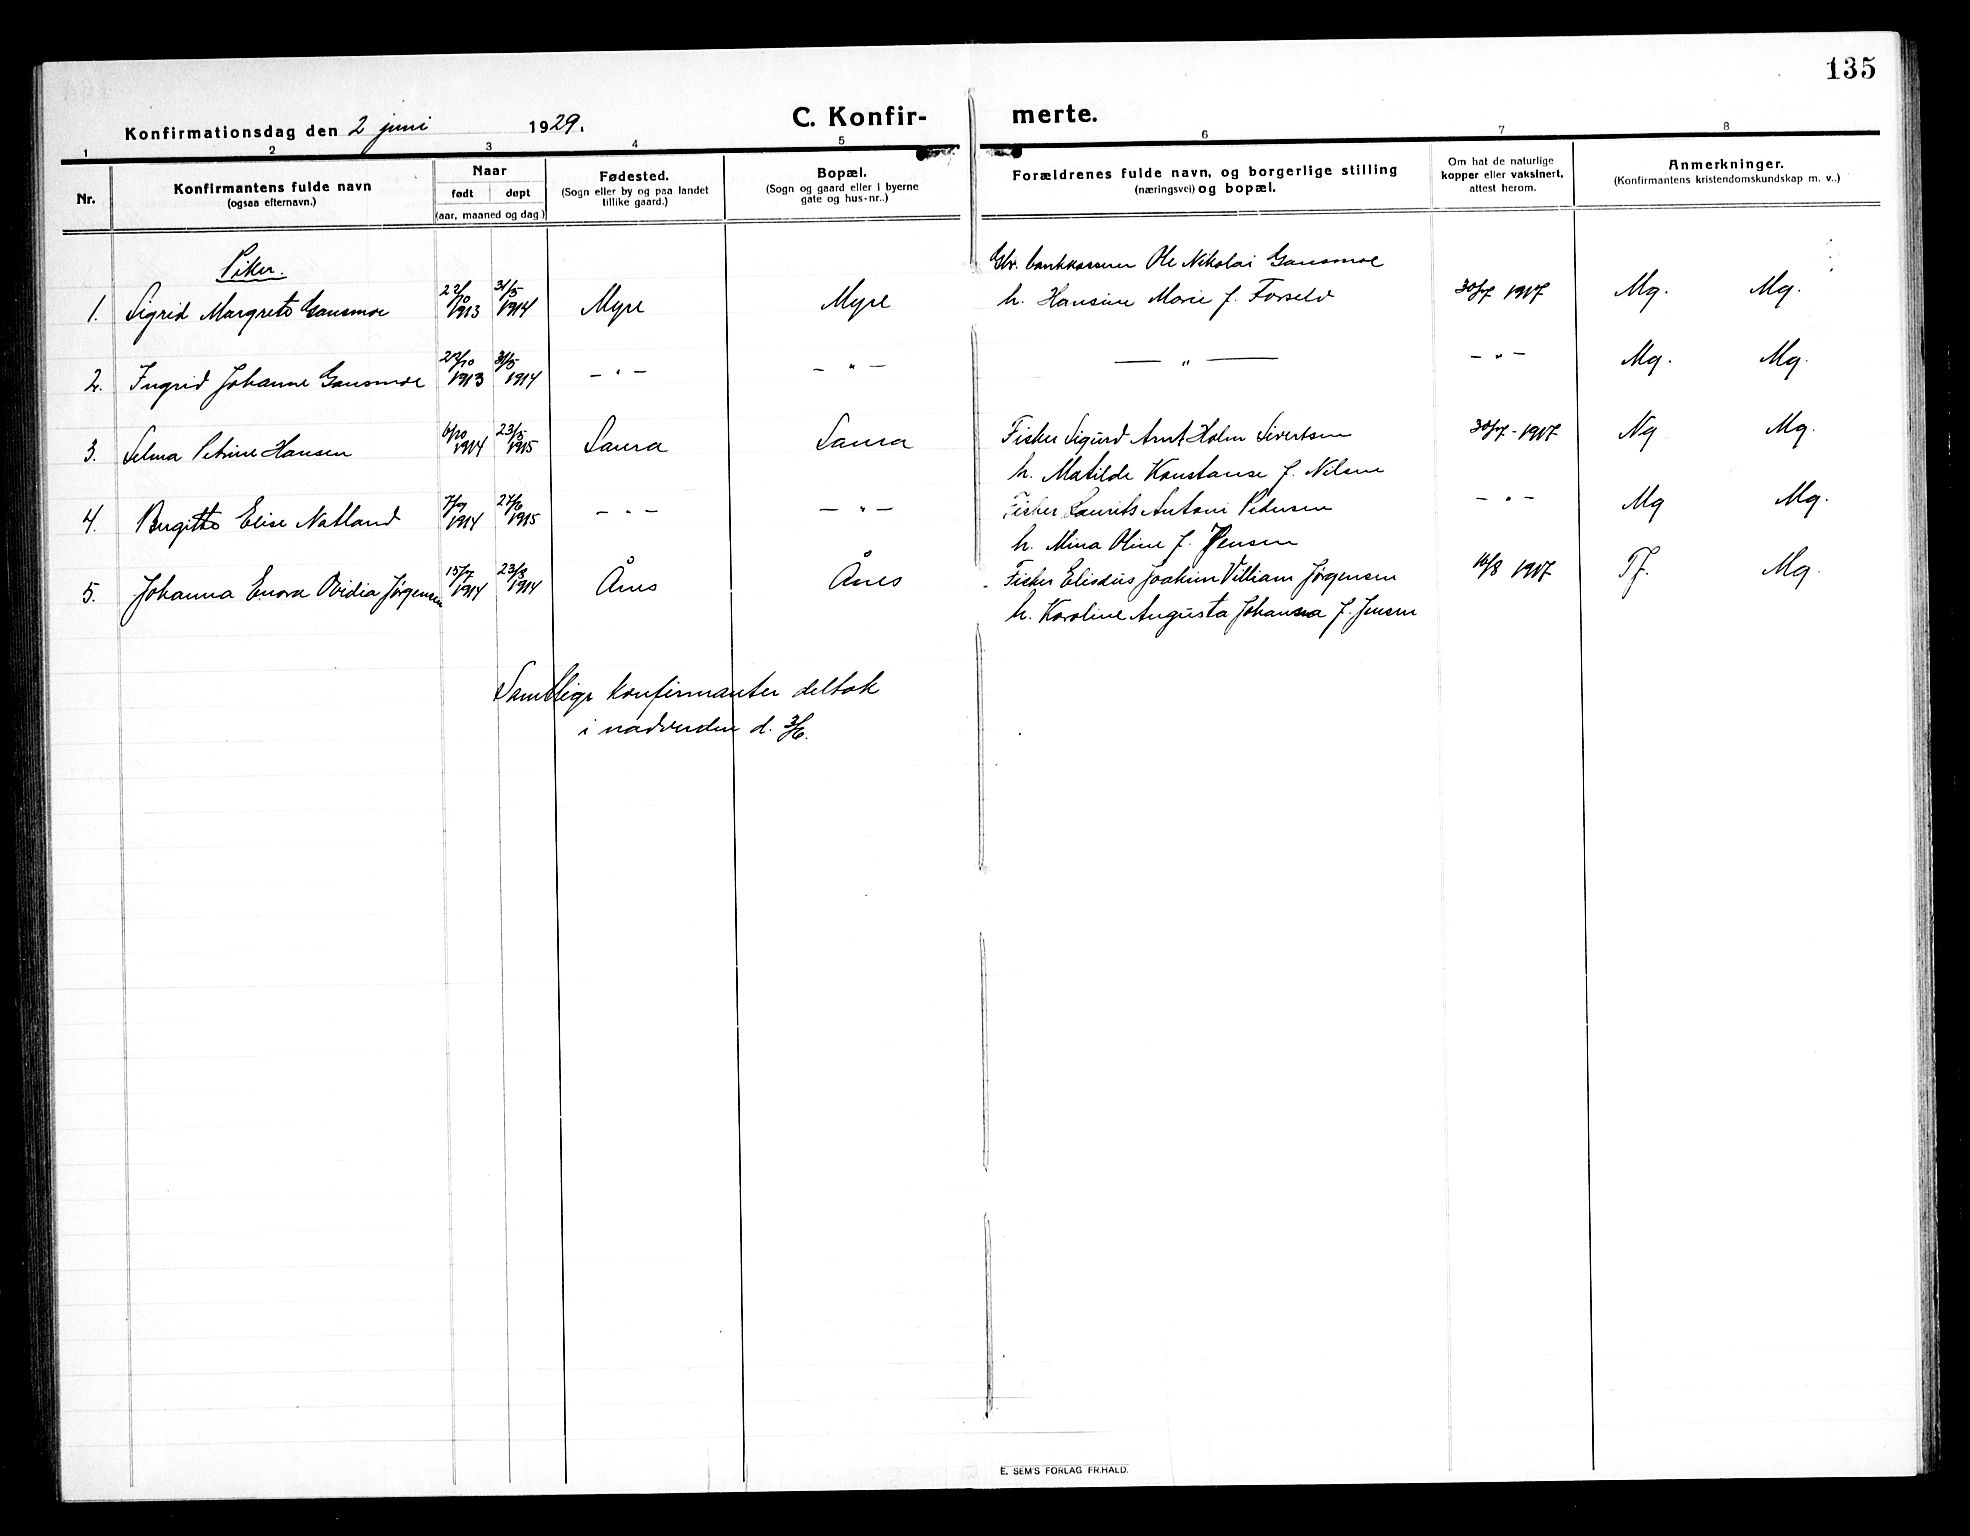 135
Konfirmationsdag den 2 juni 1929.
C. Konfir-
merte.
1 2 3 4 5 6 7 8
Nr.
Konfirmantens fulde navn
(ogsaa efternavn.)
Naar
født døpt
(aar, maaned og dag)
Fødested.
(Sogn eller by og paa landet
tillike gaard.)
Bopæl.
(Sogn og gaard eller i byerne
gate og hus-nr..)
Forældrenes fulde navn, og borgerlige stilling
(næringsvei) og bopæl.
Om hat de naturlige
kopper eller vaksinert,
attest herom.
Anmerkninger.
(Konfirmantens kristendomskundskap m. v.)
Piker.
Ole Nikolai Gausmoe
1. Sigrid Margrete Gausmoe 22/10 1913 31/5 1914 Myre Myre h. Hansine Marie f. 1917 Mg. Mg.
2. Ingrid Johanne Gausmoe 22/10 1913 31/5 1914 - " - - " - — " — - " - Mg. Mg.
3. Selma Petrine Hansen 6/10 1914 23/5 1915 Saura Saura Fisker Sigurd Arnt Holm Sivertsen 1917 Ng Mg.
h. Matilde Konstanse f. Nilsen
4. Birgitte Elise Natland 1914 27/6 1915 - " - - " - Fisker Laurits Antoni Pedersen - " - Mg Mg.
h. Mina Oline f. Jensen
5. Johanna Enora Ovidia Jørgensen 15/7 1914 23/8 1914 Ånes Ånes Fisker Elisdus Joakim Villiam Jørgensen 1917 Tf. Mg.
h. Karoline Augusta Johanna f. Jensen
Samtlige konfirmanter deltok
i nadverden d. 3/6.
E. SEM'S FORLAG FR.HALD.